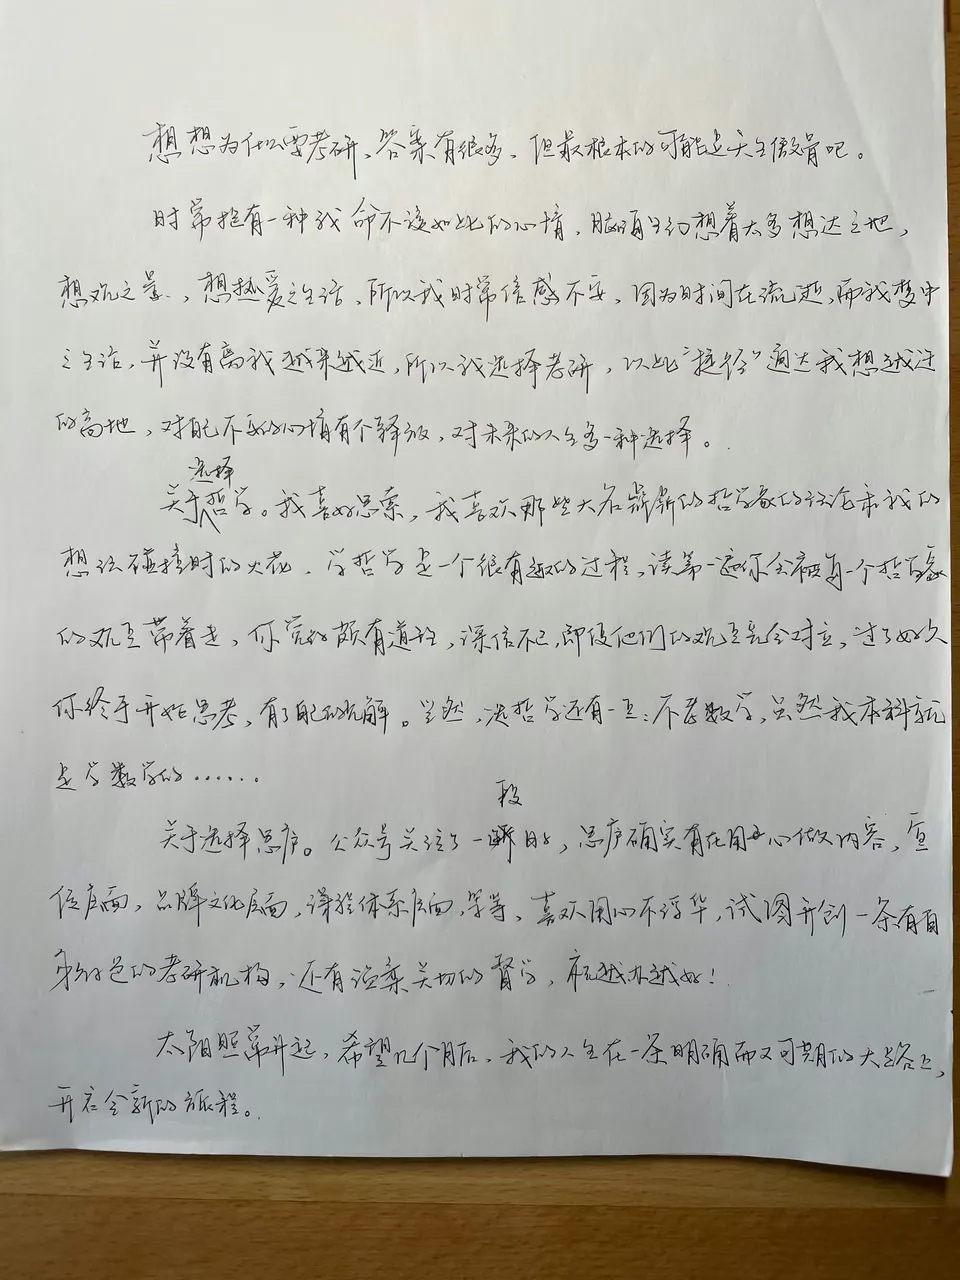 想想为什么要考研，答案有很多，但最根本的可能是天生傲骨吧。
时常抱有一种我命不该如此的心境，脑海里幻想着太多想达之地，
想观之景，想热爱之生活，所以我时常倍感不安，因为时间在流逝，而我梦中
之生活，并没有离我越来越近，所以我选择考研，以此“捷径”通达我想越过
的高地，对自己不安的心境有个释放，对未来的人生多一种选择。
关于选择哲学。我喜好思索，我喜欢那些大名鼎鼎的哲学家的理论和我的
想法碰撞时的火花，学哲学是一个很有趣的过程，读第一遍你会被每一个哲学家
的观点带着走，你觉得颇有道理，深信不已，即使他们的观点完全对立，过了好久
你终于开始思考，有了自己的见解。当然，选哲学还有一点：不考数学，虽然我本科就
是学数学的……
关于选择思庐。公众号关注了一段时间，思庐确实有在用心做内容，
层面，品牌文化层面，课程体系层面，等等，喜欢用心不浮华，试图开创一条有自
身特色的考研机构，还有温柔关切的督学，祝越办越好！
太阳照常升起，希望几个月后，我的人生在一条明确而又可期的大路上，
开启全新的旅程。